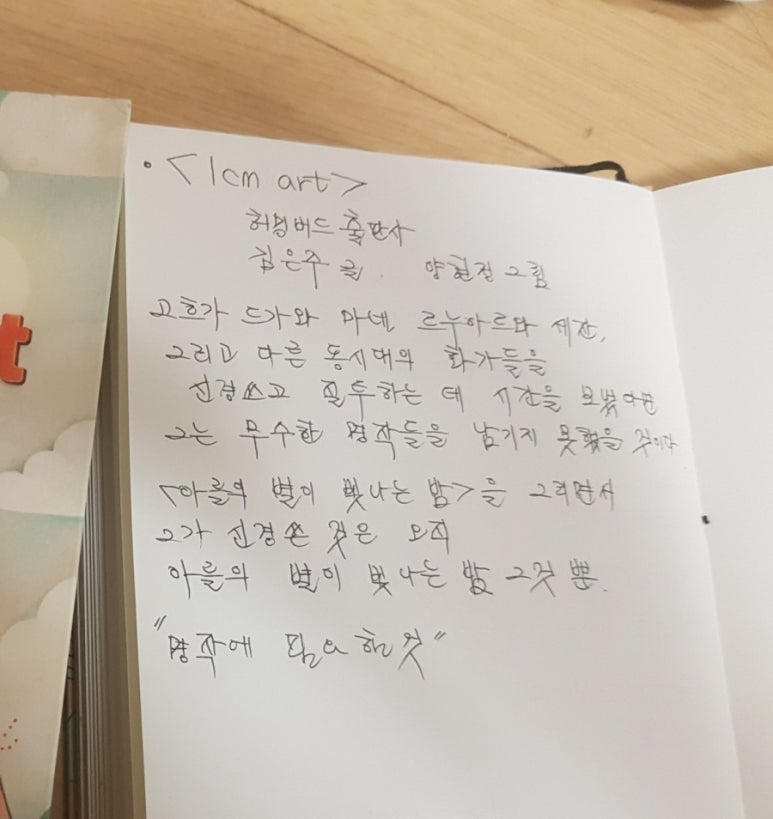 • <1cm art>
허밍버드 출판사
김은주 글. 양현정 그림
고흐가 드가와 마네, 르누아르와 세잔,
그리고 다른 동시대의 화가들을
신경쓰고 질투하는 데 시간을 보냈다면
그는 무수한 명작들을 남기지 못했을 것이다
<아를의 별이 빛나는 밤>을 그리면서
그가 신경쓴 것은 오직
아를의 별이 빛나는 밤 그것 뿐.
"명작에 필요한 것"
t